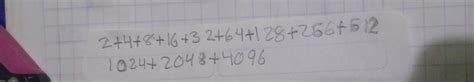 2+4+8+16+32+64+128+256+512
1024+2048+4096